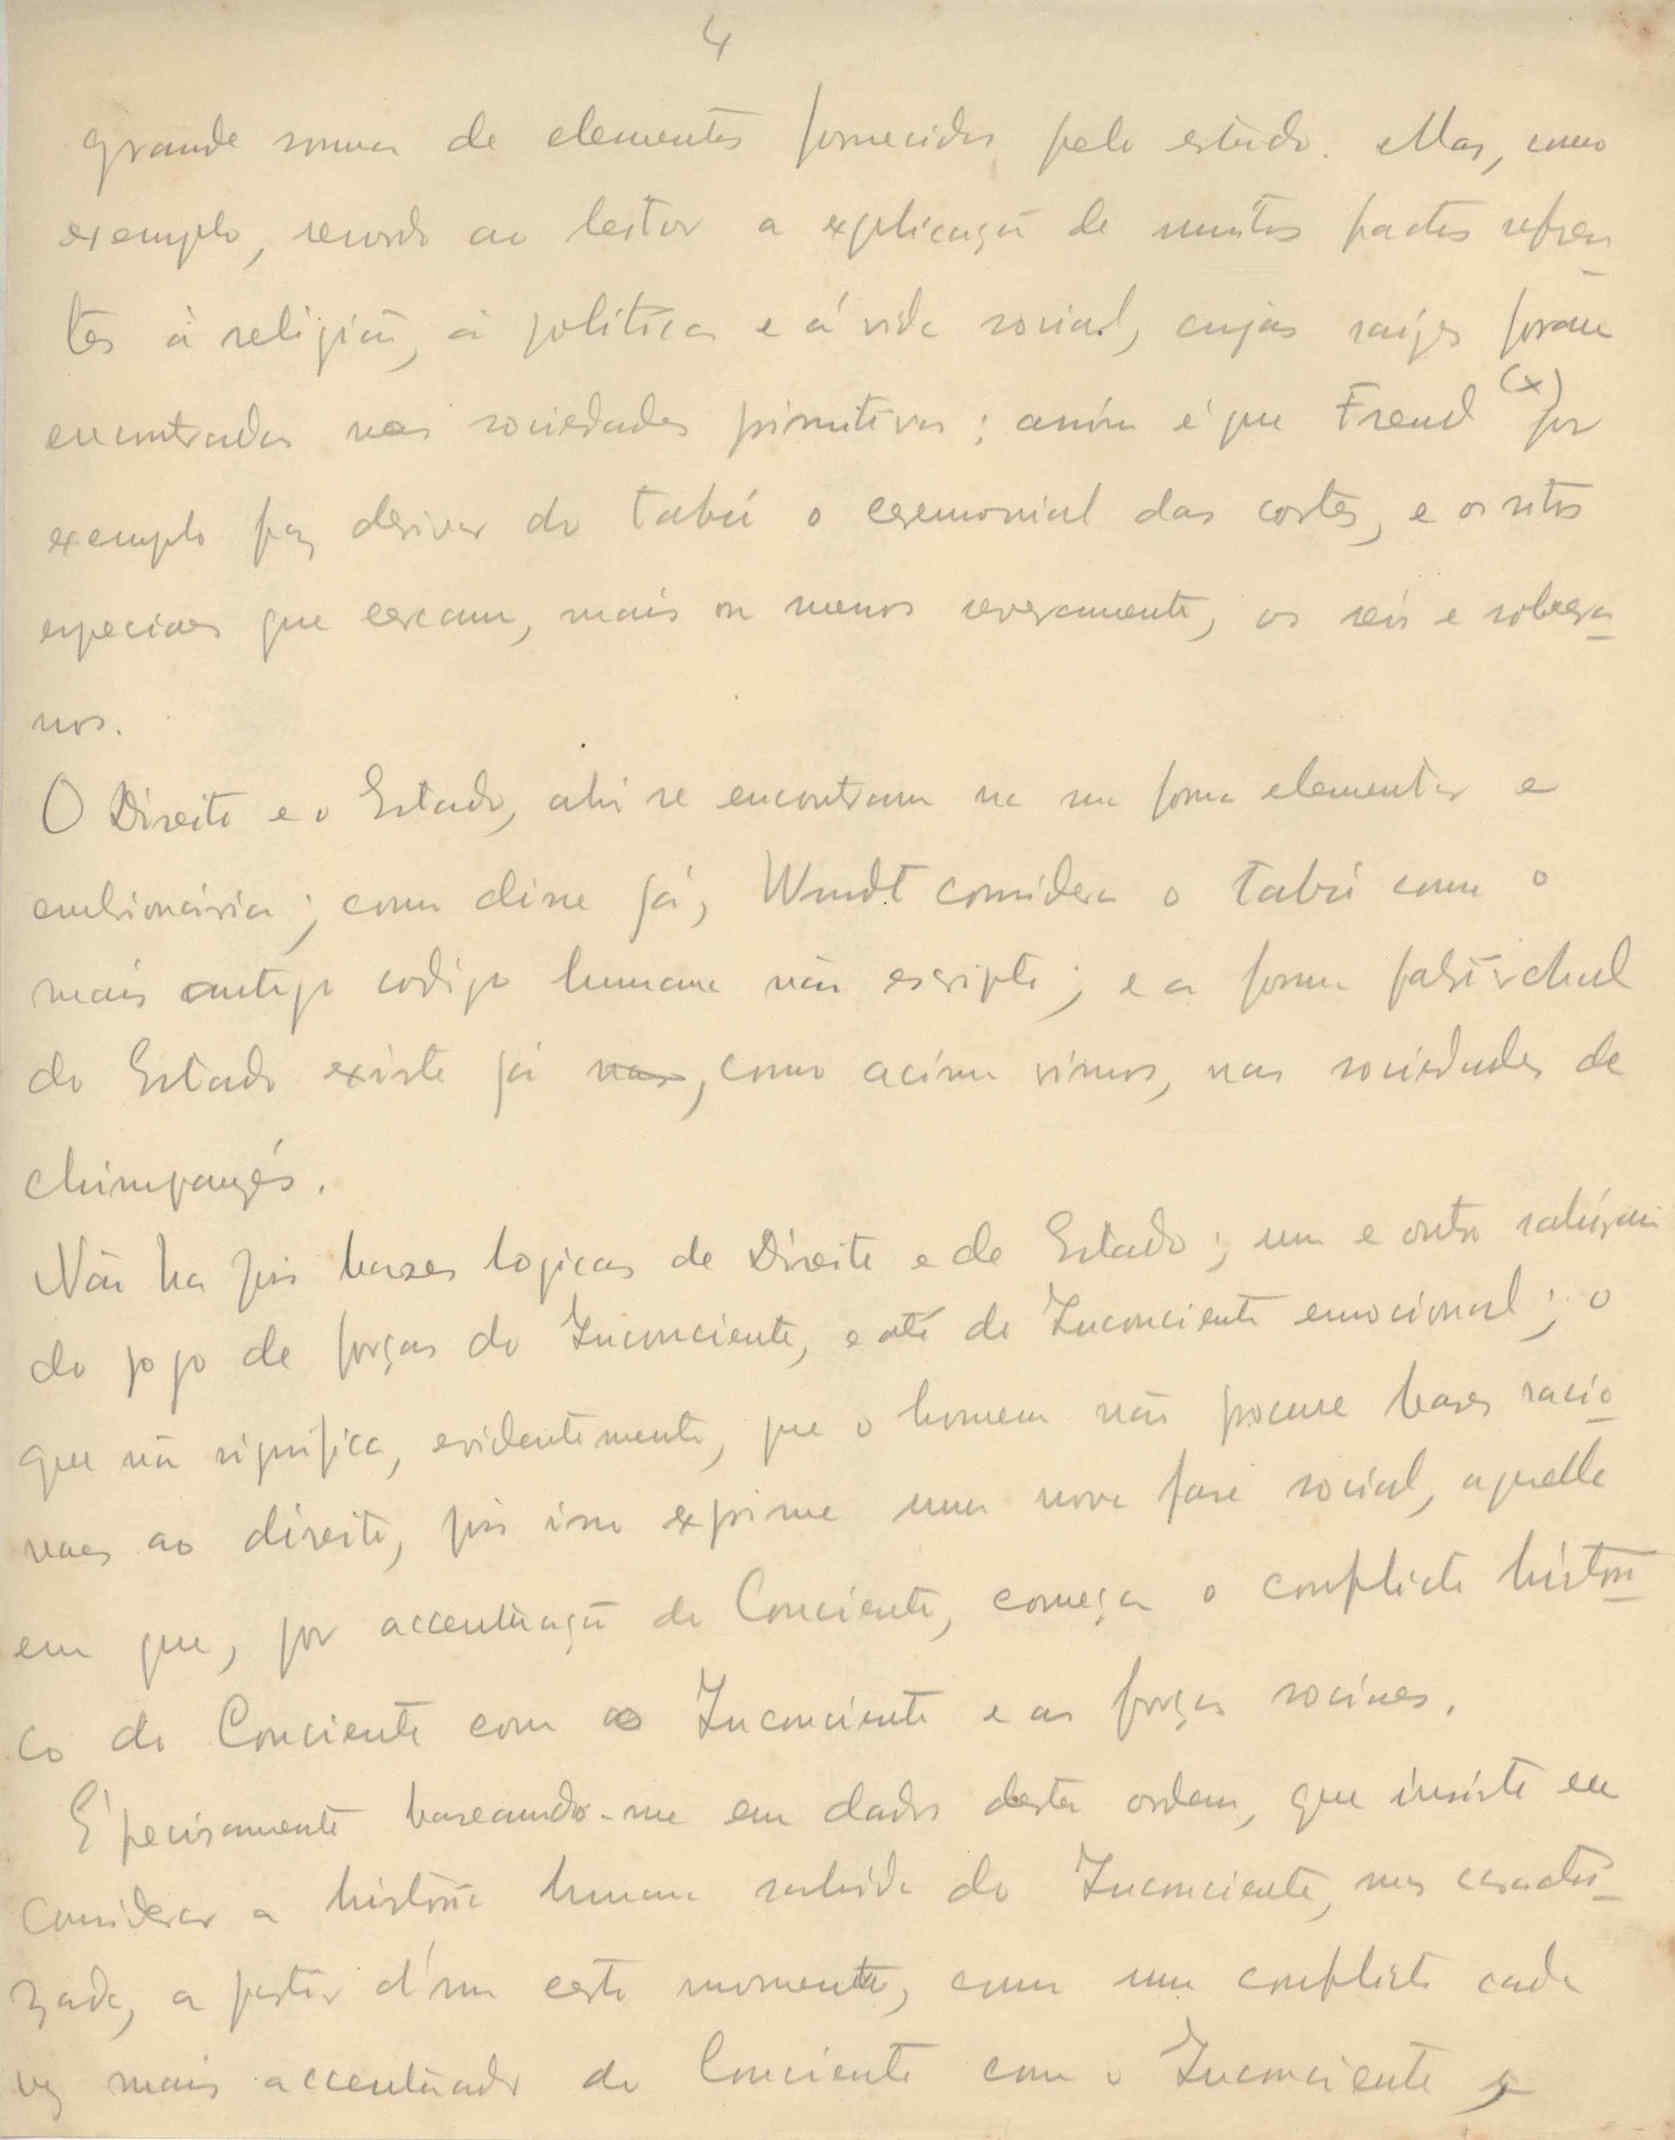 4
grande somma de elementos fornecidos pelo estudo. Mas, como
exemplo, recordo ao leitor a explicação de muitos factos referen
tes à religião, à politica e á vida social, cujas raizes foram
encontradas nas sociedades primitivas; assim é que Freud (x) por
exemplo faz derivar do tabú o ceremonial das cortes, e os ritos
especiaes que cercam, mais ou menos severamente, os reis e sobera
nos.
O Direito e o Estado, ahi se encontram na sua forma elementar e
embrionária; como disse já, Wundt considera o tabú como o
mais antigo codigo humano não escripto; e a forma patriarchal
do Estado existe já nas, como acima vimos, nas sociedades de
chimpanzés.
Não ha pois bases logicas do Direito e do Estado; um e outro sahiram
do jogo de forças do Inconciente, e até do Inconciente emocional; o
que não significa, evidentemente, que o homem não procure bases racio
naes ao direito, pois isso exprime uma nova fase social, aquella
em que, por accentuação do Conciente, começa o conflicto histori
co do Conciente com o Inconciente e as forças sociaes.
É precisamente baseando-me em dados desta ordem, que insisto em
considerar a história humana sahida do Inconciente, mas caracteri
zada, a partir d'um certo momento, como um conflicto cada
vez mais accentuado do Conciente com o Inconciente,